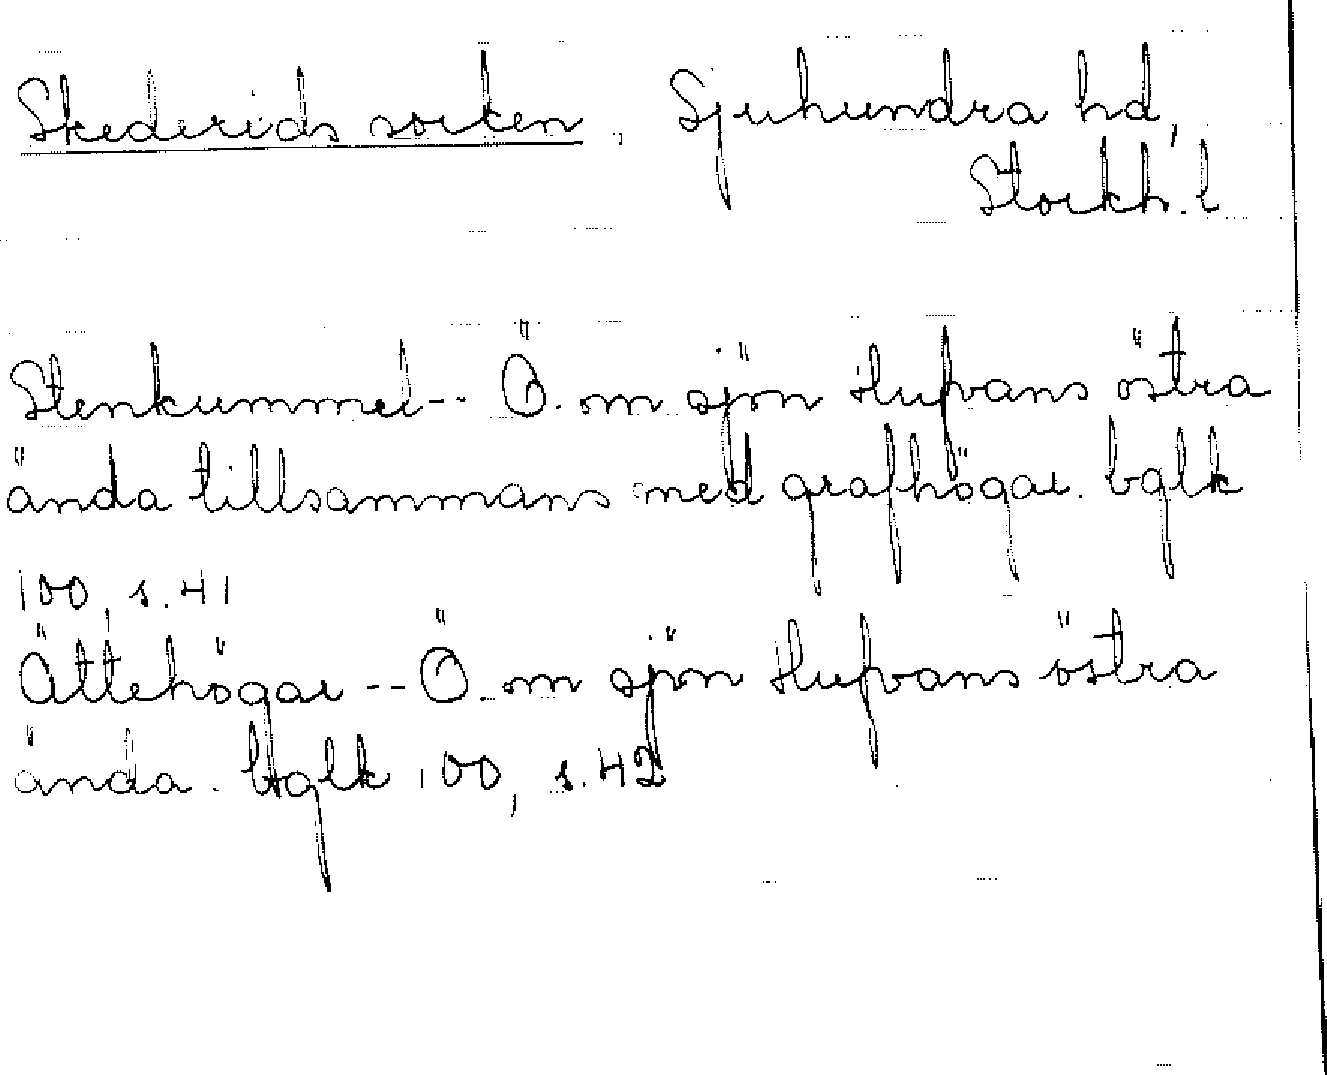 Skederids socken, Sjuhundra hd,
Stockh. l
Stenkummel -- Ö. om sjön Hufvans östra
ända tillsammans med grafhögar. bglk
100, s. 41
Ättehögar -- Ö. om sjön Hufvans östra
ända. bglk 100, s. 42